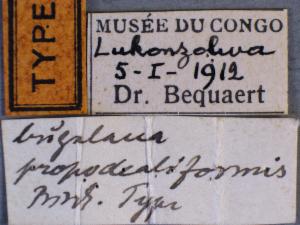 TYPE
MUSÉE DU CONGO
Lukonzolwa
5-I-1912
Dr. Bequaert
propodealiformis
Type